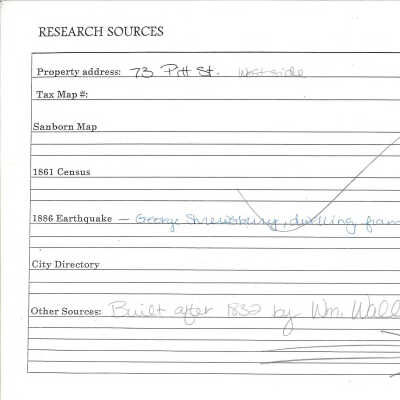 RESEARCH SOURCES
Property address: 73 Pitt St. West side
Tax Map #:
Sanborn Map
1861 Census
1886 Earthquake — George Shrewsbury, dwelling fram
City Directory
Other Sources: Built after 1832 by Wm. Wall